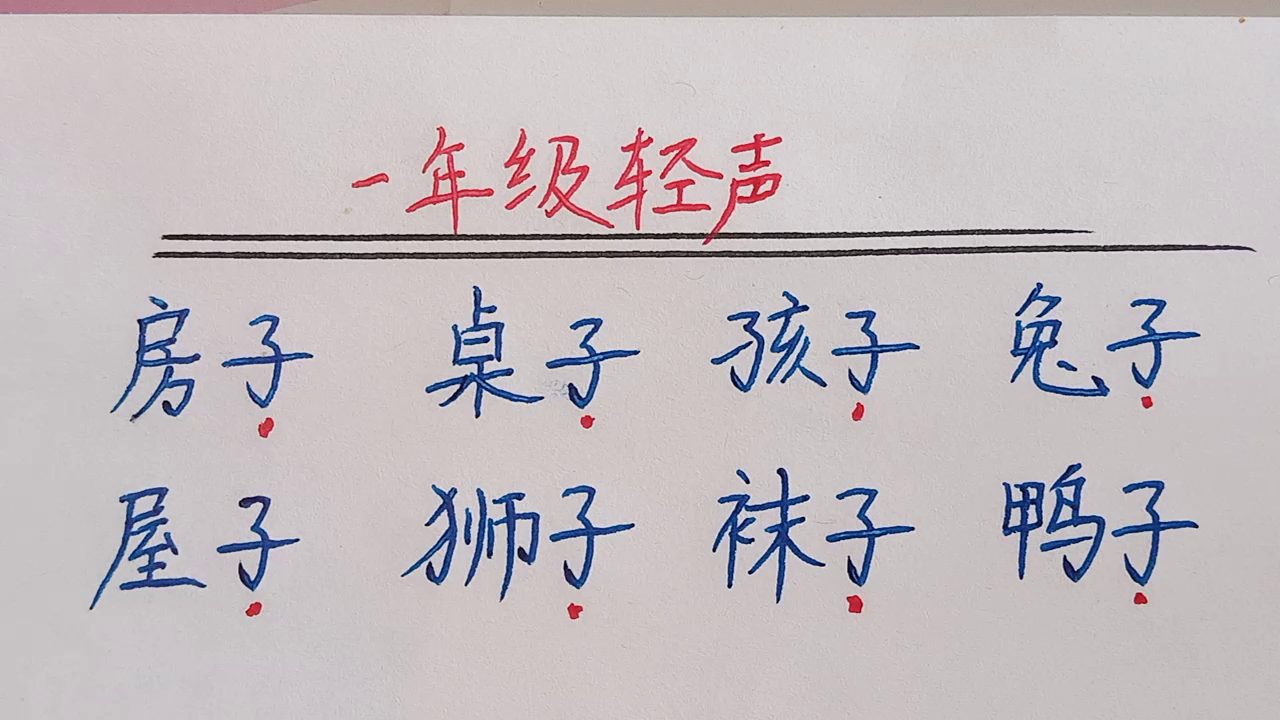 一年级轻声
房子 桌子 孩子 兔子
屋子 狮子 袜子 鸭子